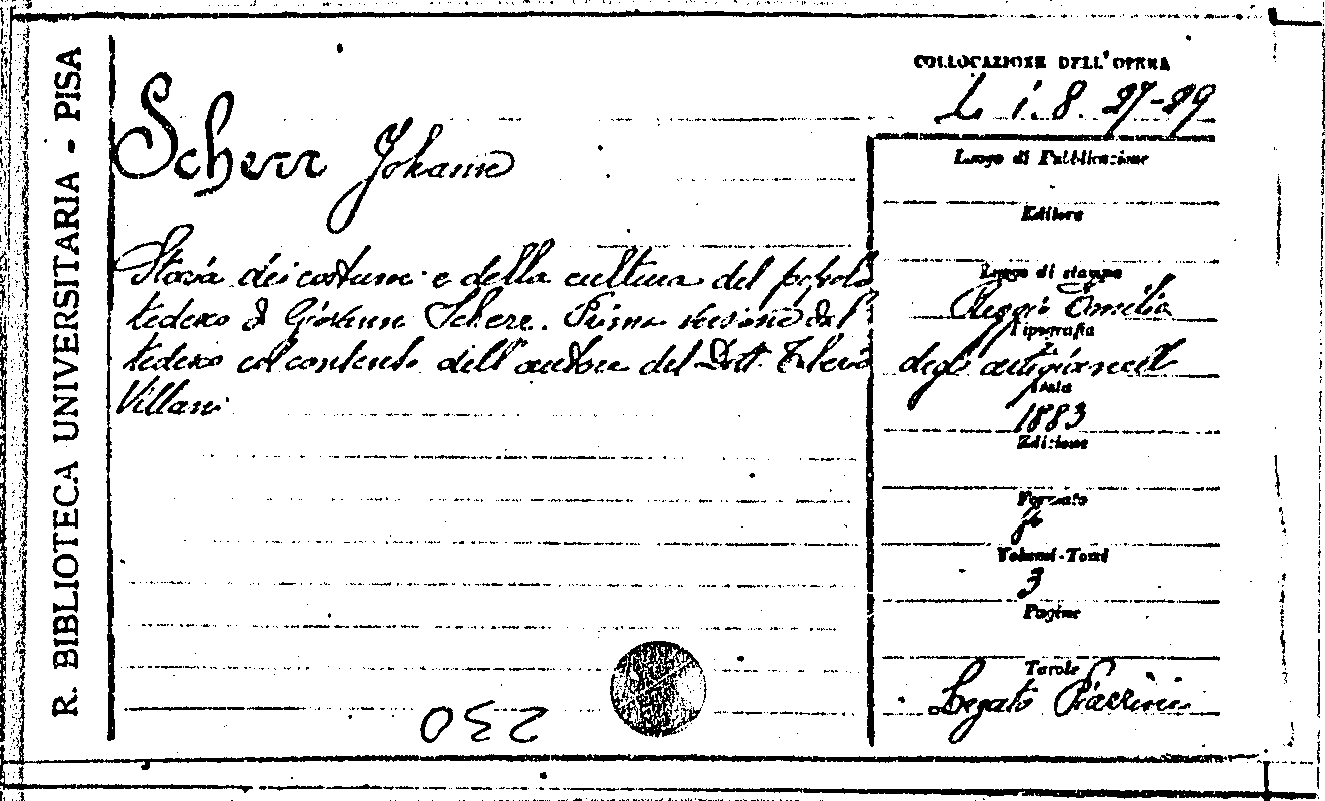 R. BIBLIOTECA UNIVERSITARIA - PISA
COLLOCAZIONE DELL'OPERA
L. i. 8. 27-29
Scherr Johann
Storia dei costumi e della cultura del popolo
tedesco di Giovanni Scherr. Prima versione dal
tedesco col contento dell'autore del Dott.
Villani
Luogo di Pubblicazione
Editore
Luogo di stampa
Reggio Emilia
Tipografia
degli artigianelli
Data
1883
Edizione
Formato
Volumi-Tomi
3
Pagine
Tavole
Legato Piazzini
230